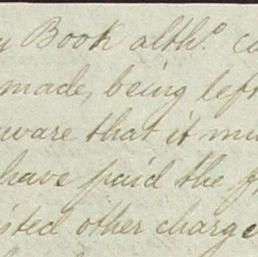 y Book altho. ca
made, being left
ware that it mu
have paid the
isted other charge